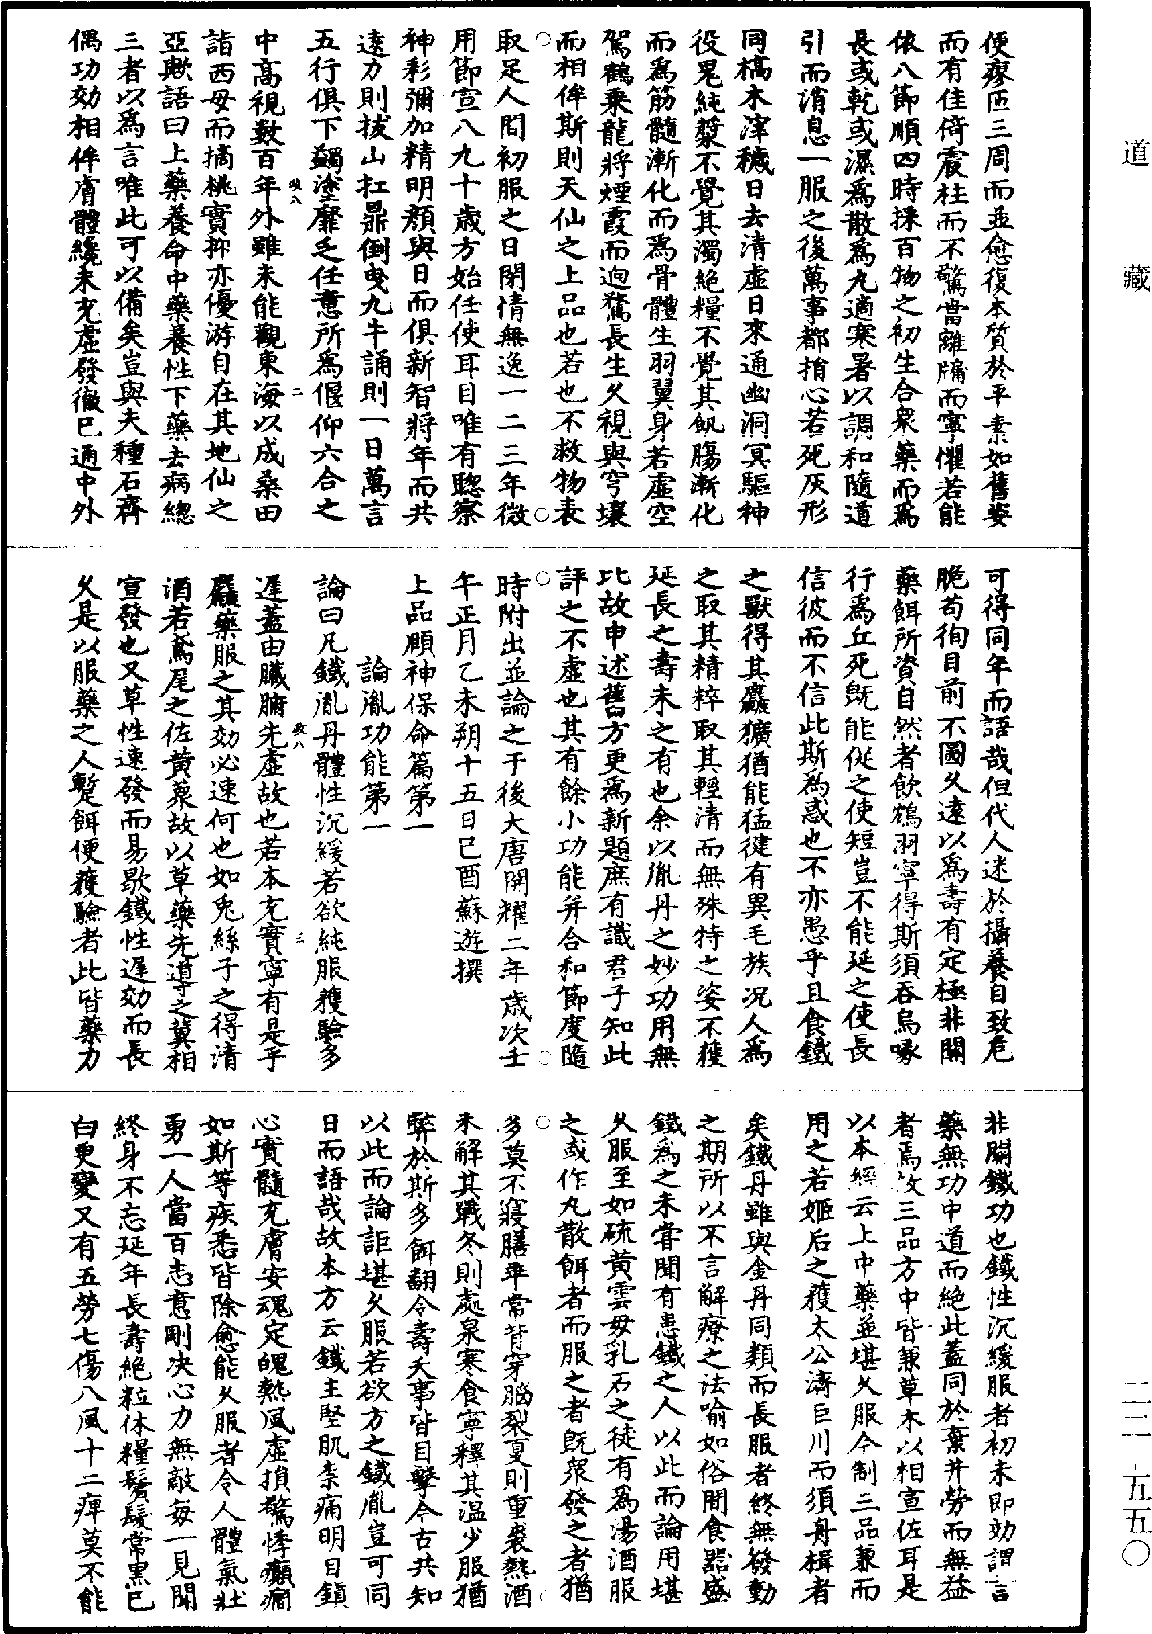 便瘳帀三周而並愈復本質於平素如舊姿
而有佳倚震柱而不驚當離牖而寧懼若能
依八節順四時採百物之初生合衆藥而爲
長或乾或濕爲散爲丸適寒暑以調和隨道
引而消息一服之後萬事都捐心若死灰形
同槁木滓穢日去清虛日來通幽洞冥驅神
役鬼純漿不覺其濁絶糧不覺其飢腸漸化
而爲筋髓漸化而爲骨體生羽翼身若虛空
駕鶴乘龍將煙霞而迥騖長生久視與穹壤
而相侔斯則天仙之上品也若也不救物表
取足人間初服之日閉情無逸一二三年微
用節宣八九十歲方始任使耳目唯有聰察
神彩彌加精明顔與日而俱新智將年而共
遠力則拔山扛鼎倒曳九牛誦則一日萬言
五行俱下蠲塗靡乏任意所爲偃仰六合之
中高視數百年外雖未能觀東海以成桑田
詣西母而摘桃實抑亦優游自在其地仙之
亞歟語曰上藥養命中藥養性下藥去病緫
三者以爲言唯此可以備矣豈與夫種石齊
偶功効相侔膚體纔未充虛發徹已通中外
可得同年而語哉但代人迷於攝養自致危
脆苟徇目前不圖久遠以爲壽有定極非關
藥餌所資自然者飲鴆羽寧得斯須吞烏喙
行爲丘死旣能促之使短豈不能延之使長
信彼而不信此斯爲惑也不亦愚乎且食鐵
之獸得其麤獷猶能猛健有異毛族况人爲
之取其精粹取其輕清而無殊特之姿不獲
延長之壽未之有也余以胤丹之妙功用無
比故申述舊方更爲新題庶有識君子知此
評之不虛也其有餘小功能并合和節度隨
時附出並論之于後大唐開耀二年歲次壬
午正月乙未朔十五日己酉蘇遊撰
上品頤神保命篇第一
論胤功能第一
論曰凡鐵胤丹體性沉緩若欲純服獲驗多
遲蓋由臟腑先虛故也若本充實寧有是乎
麤藥服之其効必速何也如兎絲子之得清
酒若鳶尾之佐黄菉故以草藥先導之冀相
宣發也又草性速發而易歇鐵性遲効而長
久是以服藥之人蹔餌便獲驗者此皆藥力
非關鐵功也鐵性沉緩服者初未即効謂言
藥無功中道而絶此蓋同於棄井勞而無益
者焉故三品方中皆兼草木以相宣佐耳是
以本經云上中藥並堪久服今制三品兼而
用之若姬后之獲太公濟巨川而須舟楫者
矣鐵丹雖與金丹同類而長服者終無發動
之期所以不言解療之法喻如俗閒食器盛
鐵爲之未甞聞有患鐵之人以此而論用堪
久服至如硫黄雲毋乳石之徒有爲湯酒服
之或作丸散餌者而服之者旣衆發之者猶
多莫不寢膳乖常背穿腦裂夏則重裘熱酒
未解其戰冬則處泉寒食寧釋其温少服猶
弊於斯多餌翻令壽夭事皆目擊今古共知
以此而論詎堪久服若欲方之鐵胤豈可同
日而語哉故本方云鐵主堅肌柰痛明目鎮
心實髓充膚安魂定魄熱風虛損驚悸癲癇
如斯等疾悉皆除愈能久服者令人體氣壯
勇一人當百志意剛决心力無敵每一見聞
終身不忘延年長壽絶粒休糧鬢髮常黒已
白更變又有五勞七傷八風十二痺莫不能
道藏
二二‧五五〇
敬八
二
敬八
三